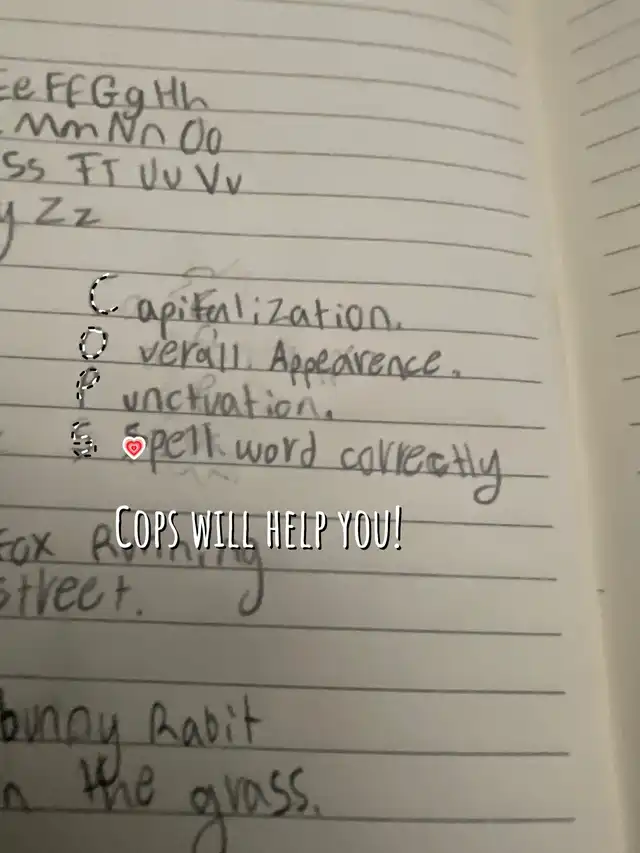 Ee Ff Gg Hh
Mm Nn Oo
Ss TT Uu Vv
y Zz
Capitalization.
Overall Appearence.
Punctuation.
S Spell word correctly
Cops will help you!
Fox Running
street.
bunny Rabit
n the grass.